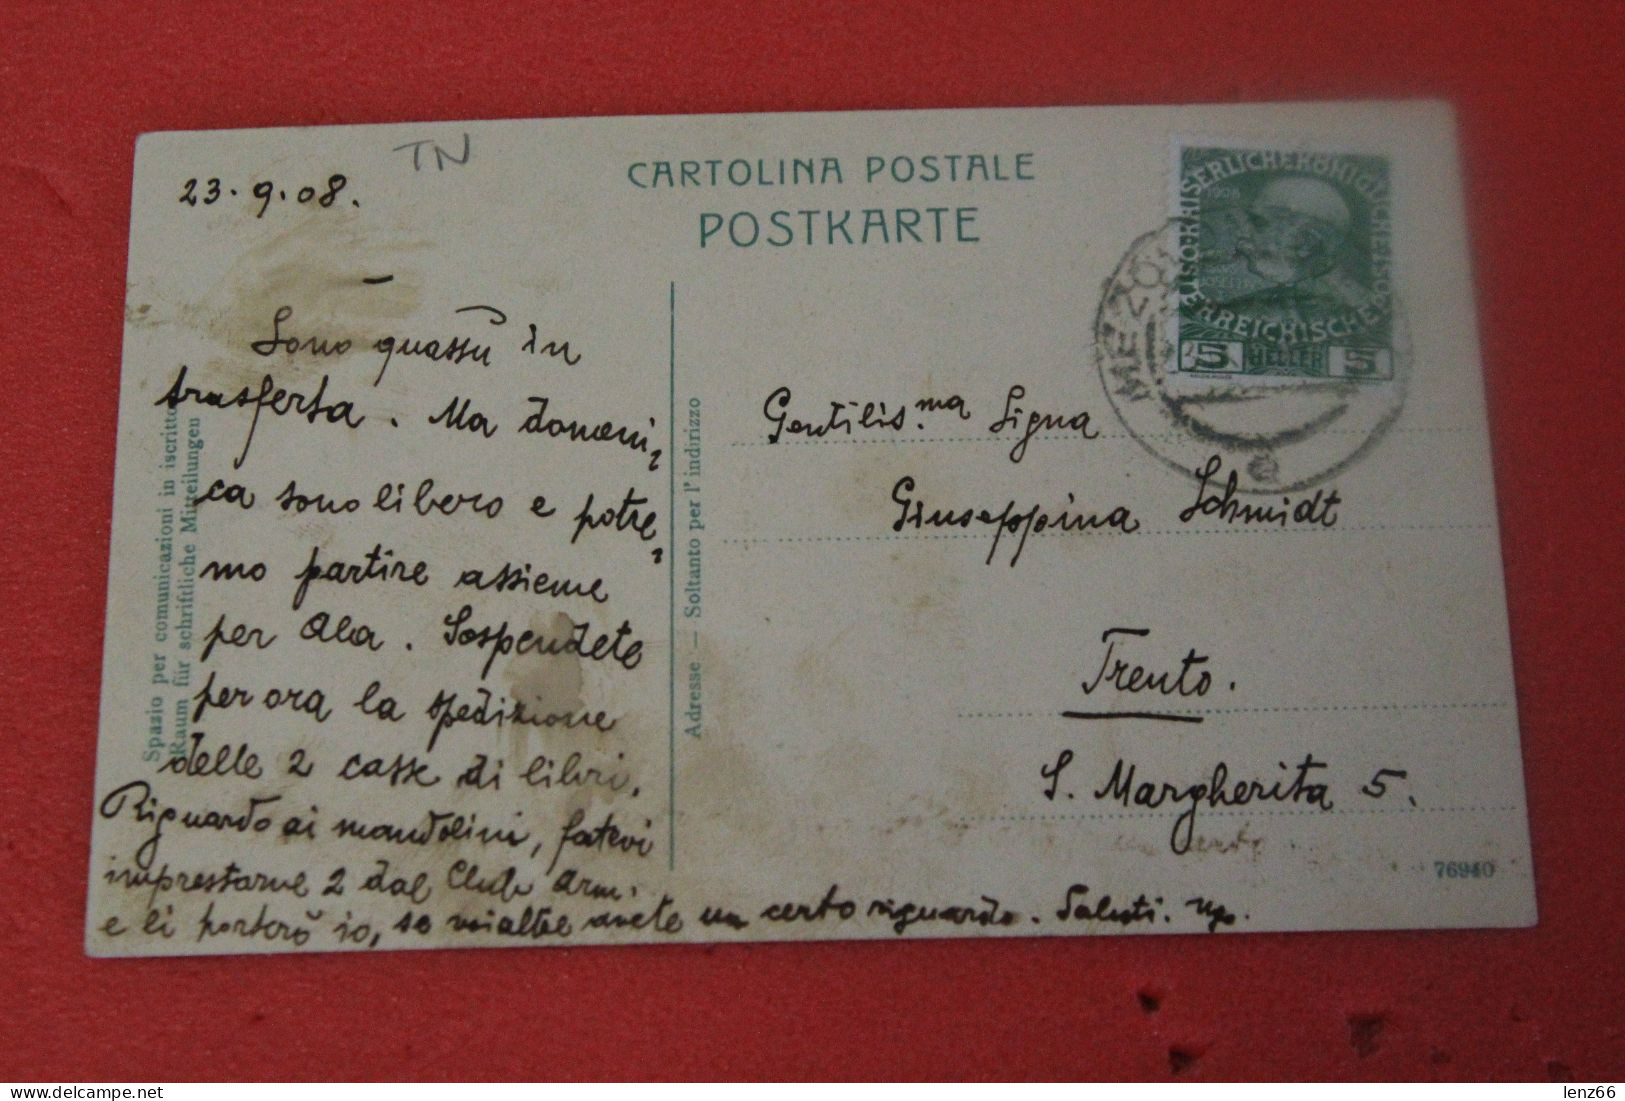 TN
23.9.08.
CARTOLINA POSTALE
POSTKARTE
ÖSTERREICHISCHE POST
KAISERLICHE KÖNIGLICHE
1908
5 HELLER 5
MEZO
a
Spazio per comunicazioni in iscritto
Raum für schriftliche Mitteilungen
Sono quassù in
trasferta. Ma domeni,
ca sono libero e potre,
mo partire assieme
per Ala. Sospendete
per ora la spedizione
delle 2 casse di libri.
Riguardo ai mandolini, fatevi
imprestarne 2 dal Club Arm.
e li porterò io, se voialtre avete un certo riguardo. Saluti. Ugo.
Adresse — Soltanto per l'indirizzo
Gentilis.ma Signa
Giuseppina Schmidt
Trento.
S. Margherita 5.
76940
lenz66